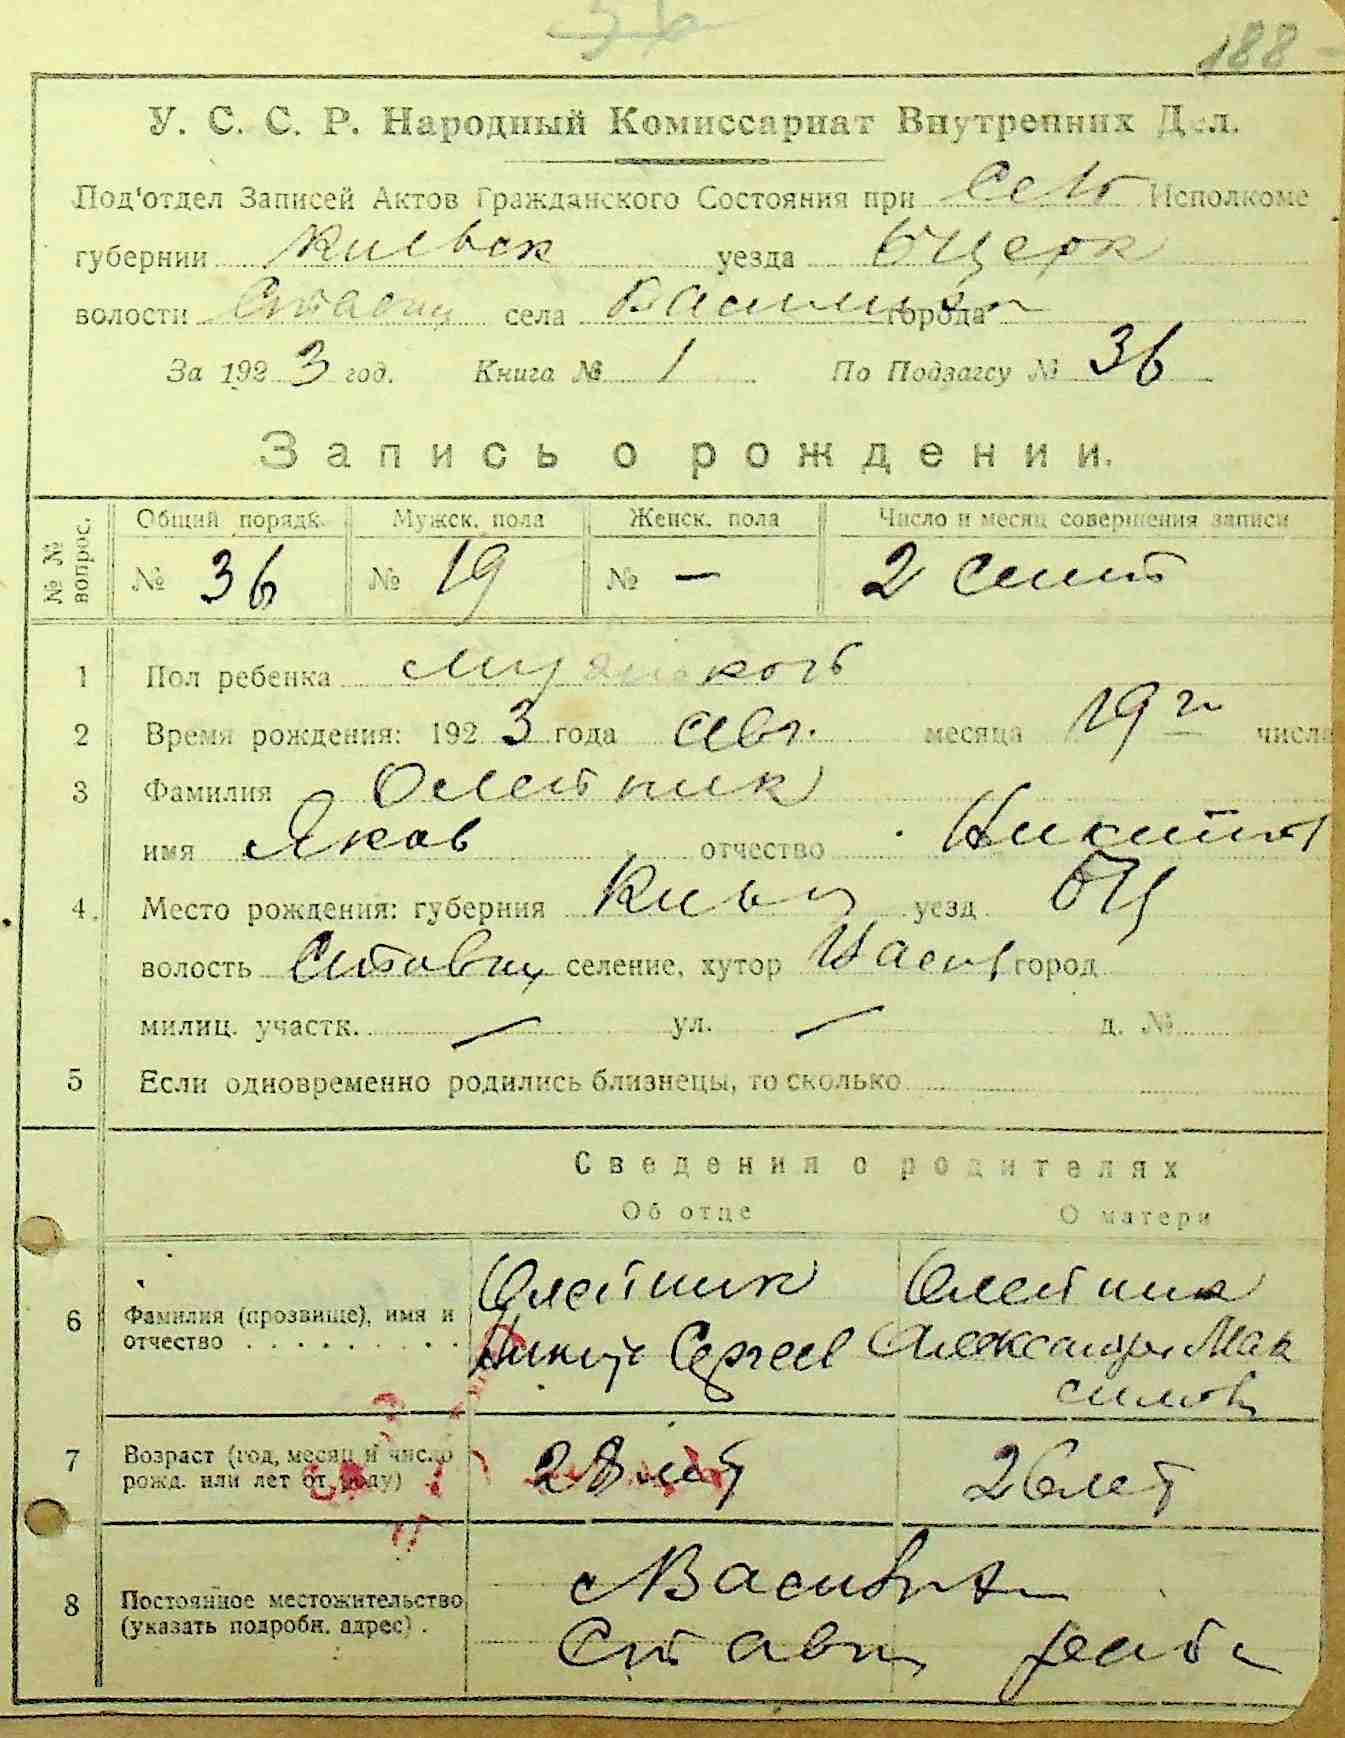 36
188
У. С. С. Р. Народный Комиссариат Внутренних Дел.
Под'отдел Записей Актов Гражданского Состояния при Сель Исполкоме
губернии Киевск уезда БЦерк
волости Ставищ села города
За 1923 год. Книга № 1 По Подзагсу № 36
Запись о рождении.
№ № вопрос. Общий порядк. Мужск. пола Женск. пола Число и месяц совершения записи
№ 36 № 19 № — 2 сент
1 Пол ребенка Мужского
2 Время рождения: 1923 года авг. месяца 19 го числа
3 Фамилия Олейник
имя Яков отчество Никитов
4. Место рождения: губерния уезд БЦ
волость Ставищ селение, хутор город
милиц. участк. — ул. — д. №
5 Если одновременно родились близнецы, то сколько
Сведения о родителях
Об отце О матери
6 Фамилия (прозвище), имя и отчество Олейник Олейник
Сергеев Александра Мак
симов
7 Возраст (год, месяц и число рожд. или лет от роду) 28 лет 26 лет
8 Постоянное местожительство (указать подробн. адрес)
Ставищ